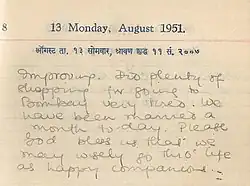 8
13 Monday, August 1951.
ऑगस्ट ता. १३ सोमवार, श्रावण शुद्ध ११ सं. २००७
Improving. Did plenty of
shopping for going to
Bombay very tired. We
have been married a
month to-day. Please
God bless us that we
may wisely go thro' life
as happy companions.